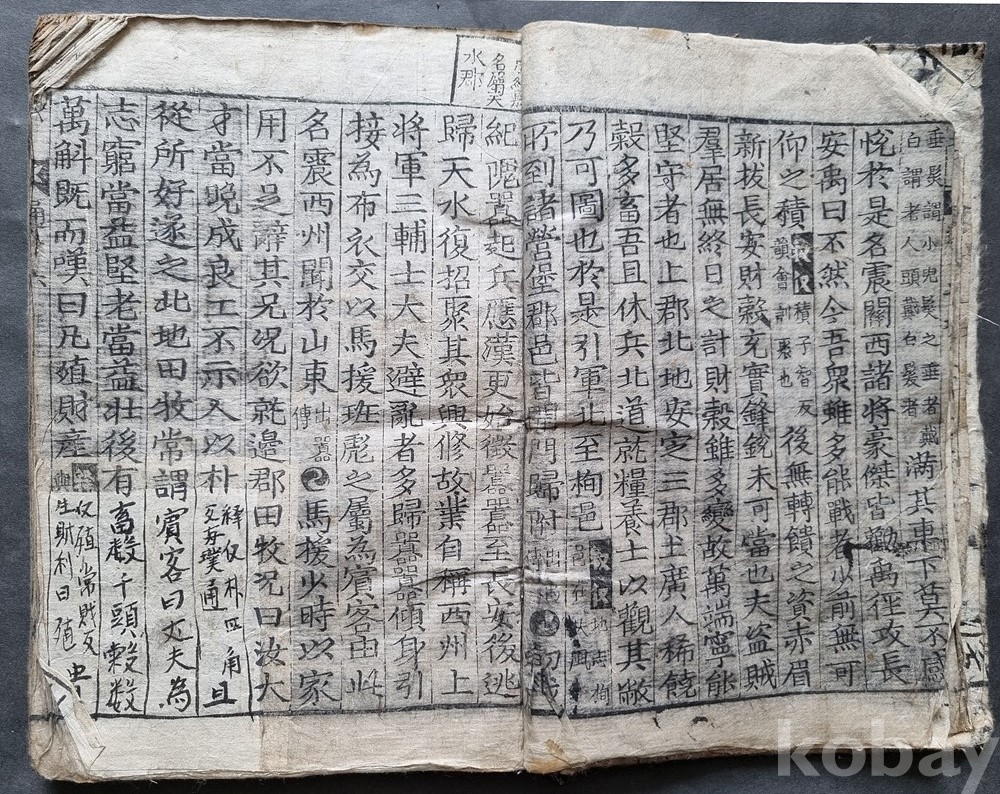 垂髮謂小兒髮之垂者戴
白謂老人頭戴白髮者
滿其車下莫不感
悅於是名震關西諸將豪傑皆勸禹徑攻長
安禹曰不然今吾衆雖多能戰者少前無可
仰之積
積子智反
後無轉饋之資赤眉
新拔長安財穀充實鋒銳未可當也夫盜賊
羣居無終日之計財穀雖多變故萬端寧能
堅守者也上郡北地安定三郡土廣人稀饒
穀多畜吾且休兵北道就糧養士以觀其敝
乃可圖也於是引軍北至栒邑
所到諸營堡郡邑皆開門歸附
水郡
紀隗囂起兵應漢更始徵囂囂至長安後逃
歸天水復招聚其衆興修故業自稱西州上
將軍三輔士大夫避亂者多歸囂囂傾身引
接爲布衣交以馬援班彪之屬爲賓客由此
名震西州聞於山東
出囂
傳
馬援少時以家
用不足辭其兄況欲就邊郡田牧況曰汝大
才當晩成良工不示人以朴
釋仅朴四角且
通
從所好遂之北地田牧常謂賓客曰丈夫爲
志窮當益堅老當益壯後有畜數千頭穀數
萬斛旣而嘆曰凡殖財産
生財利曰殖
kobay